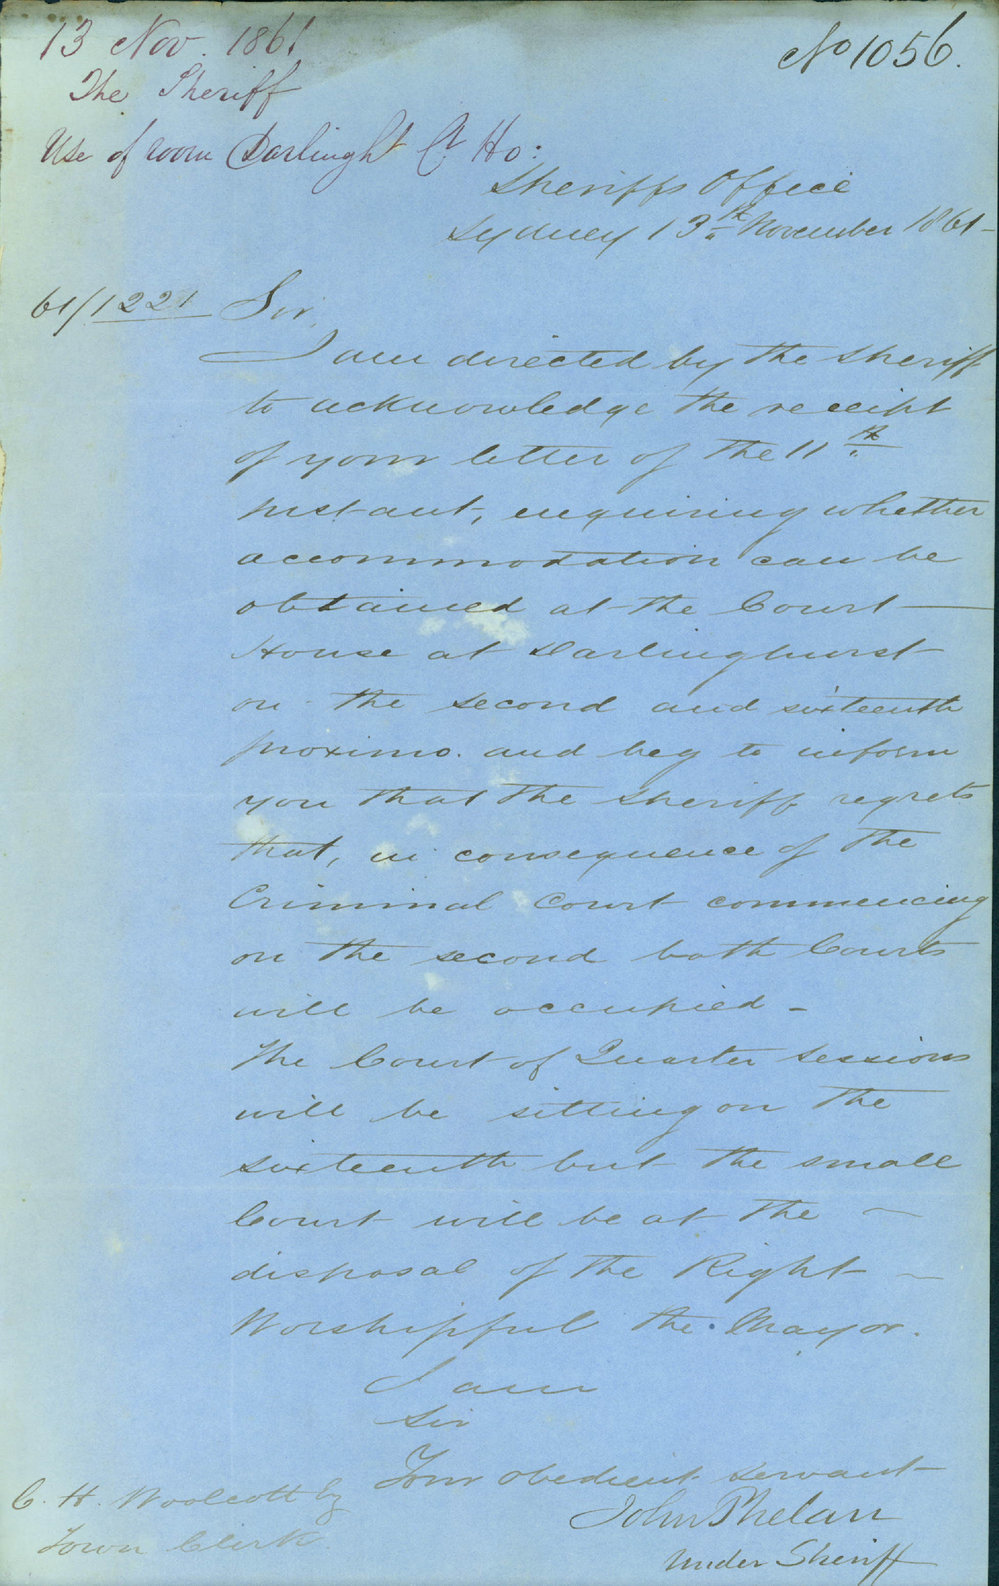 13 Nov. 1861
The Sheriff
Use of room Darlinght Ct Ho:
No 1056.
Sheriffs Office
Sydney 13th November 1861-
61/1221 Sir,
I am directed by the Sheriff
to acknowledge the receipt
of your letter of the 11th
instant, enquiring whether
accommodation can be
obtained at the Court
House at Darlinghurst
on the second and sixteenth
proximo. and beg to inform
you that the Sheriff regrets
that, in consequence of the
Criminal Court commencing
on the second both Courts
will be occupied -
The Court of Quarter Sessions
will be sitting on the
sixteenth but the small
Court will be at the
disposal of the Right
Worshipful the Mayor.
I am
Sir
Your obedient servant
John Phelan
Under Sheriff
C. H. Woolcott Esq
Town Clerk